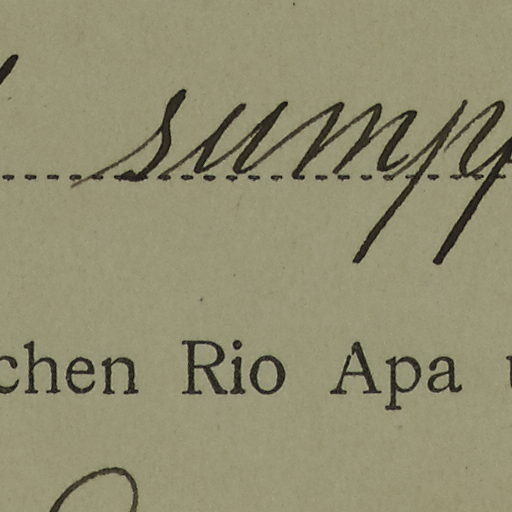 sump
chen Rio Apa